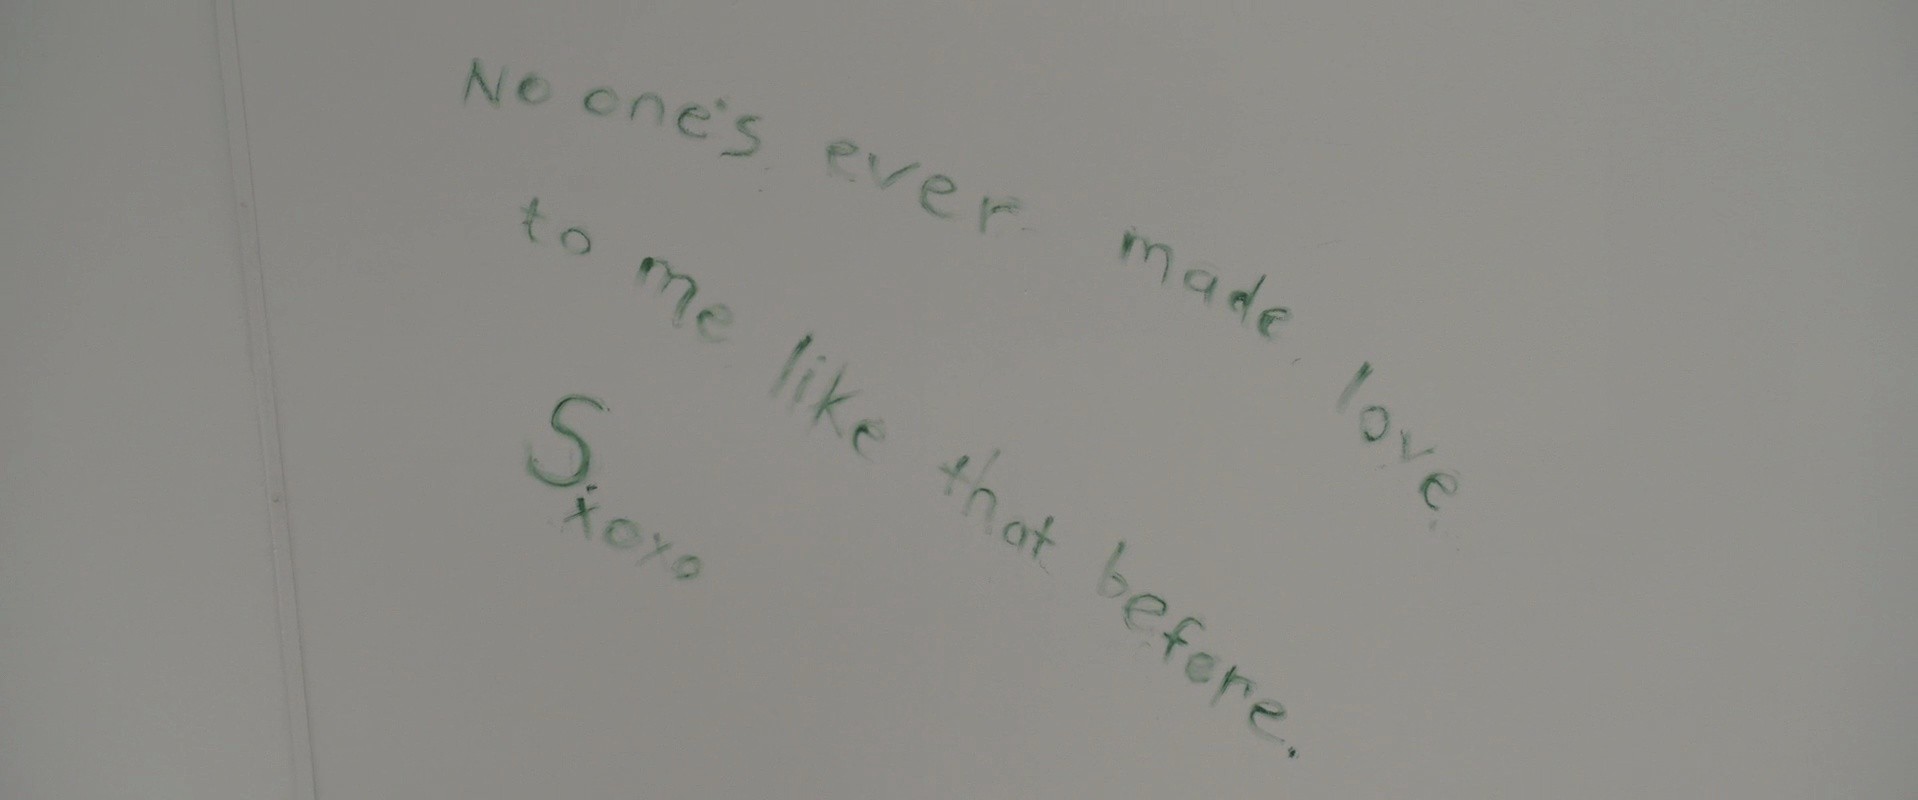 No one's ever made love
to me like that before.
S
xoxo